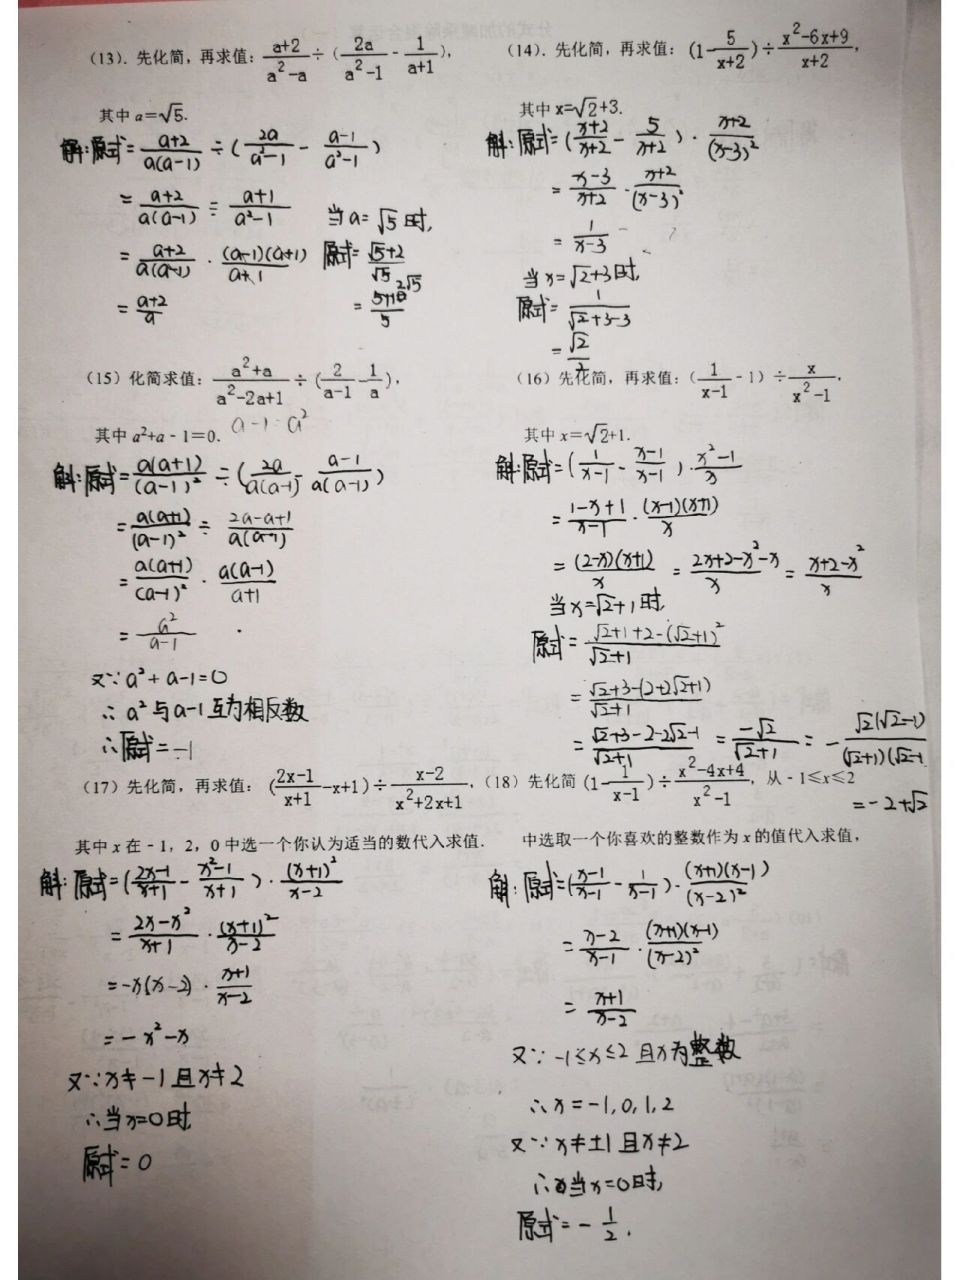 (13). 先化简，再求值：(a+2)/(a²-a) ÷ (2a/(a²-1) - 1/(a+1))，
其中 a=√5.
解：原式=(a+2)/(a(a-1)) ÷ (2a/(a²-1) - (a-1)/(a²-1))
=(a+2)/(a(a-1)) ÷ (a+1)/(a²-1)
=(a+2)/(a(a-1)) · ((a-1)(a+1))/(a+1)
=(a+2)/a
当a=√5时，
原式=(√5+2)/√5
=(5+2√5)/5
(14). 先化简，再求值：(1-5/(x+2))÷(x²-6x+9)/(x+2)，
其中 x=√2+3.
解：原式=((x+2)/(x+2) - 5/(x+2)) · (x+2)/(x-3)²
=(x-3)/(x+2) · (x+2)/(x-3)²
=1/(x-3)
当x=√2+3时，
原式=1/(√2+3-3)
=√2/2
(15) 化简求值：(a²+a)/(a²-2a+1) ÷ (2/(a-1) - 1/a)，
其中 a²+a-1=0. a-1 a²
解：原式=(a(a+1))/(a-1)² ÷ (2a/(a(a-1)) - (a-1)/(a(a-1)))
=(a(a+1))/(a-1)² ÷ (2a-a+1)/(a(a-1))
=(a(a+1))/(a-1)² · (a(a-1))/(a+1)
=a²/(a-1)
又∵a²+a-1=0
∴a²与a-1互为相反数
∴原式=-1
(16) 先化简，再求值：(1/(x-1) - 1)÷x/(x²-1)，
其中 x=√2+1.
解：原式=(1/(x-1) - (x-1)/(x-1))·(x²-1)/x
=(1-x+1)/(x-1)·((x-1)(x+1))/x
=((2-x)(x+1))/x = (2x+2-x²-x)/x = (x+2-x²)/x
当x=√2+1时，
原式=(√2+1+2-(√2+1)²)/(√2+1)
=(√2+3-(2+2√2+1))/(√2+1)
=(√2+3-2-2√2-1)/(√2+1) = -√2/(√2+1) = -(√2(√2-1))/((√2+1)(√2-1
=-2+√2
(17) 先化简，再求值：((2x-1)/(x+1)-x+1)÷(x-2)/(x²+2x+1)，
其中 x 在 - 1，2，0 中选一个你认为适当的数代入求值.
解：原式=((2x-1)/(x+1) - (x²-1)/(x+1))·(x+1)²/(x-2)
=(2x-x²)/(x+1)·(x+1)²/(x-2)
=-x(x-2)·(x+1)/(x-2)
=-x²-x
又∵x≠-1且x≠2
∴当x=0时
原式=0
(18) 先化简 (1-1/(x-1))÷(x²-4x+4)/(x²-1)，从 - 1≤x≤2
中选取一个你喜欢的整数作为 x 的值代入求值，
解：原式=((x-1)/(x-1) - 1/(x-1))·((x+1)(x-1))/(x-2)²
=(x-2)/(x-1)·((x+1)(x-1))/(x-2)²
=(x+1)/(x-2)
又∵-1≤x≤2且x为整数
∴x=-1,0,1,2
又∵x≠±1且x≠2
∴当x=0时，
原式=-1/2.